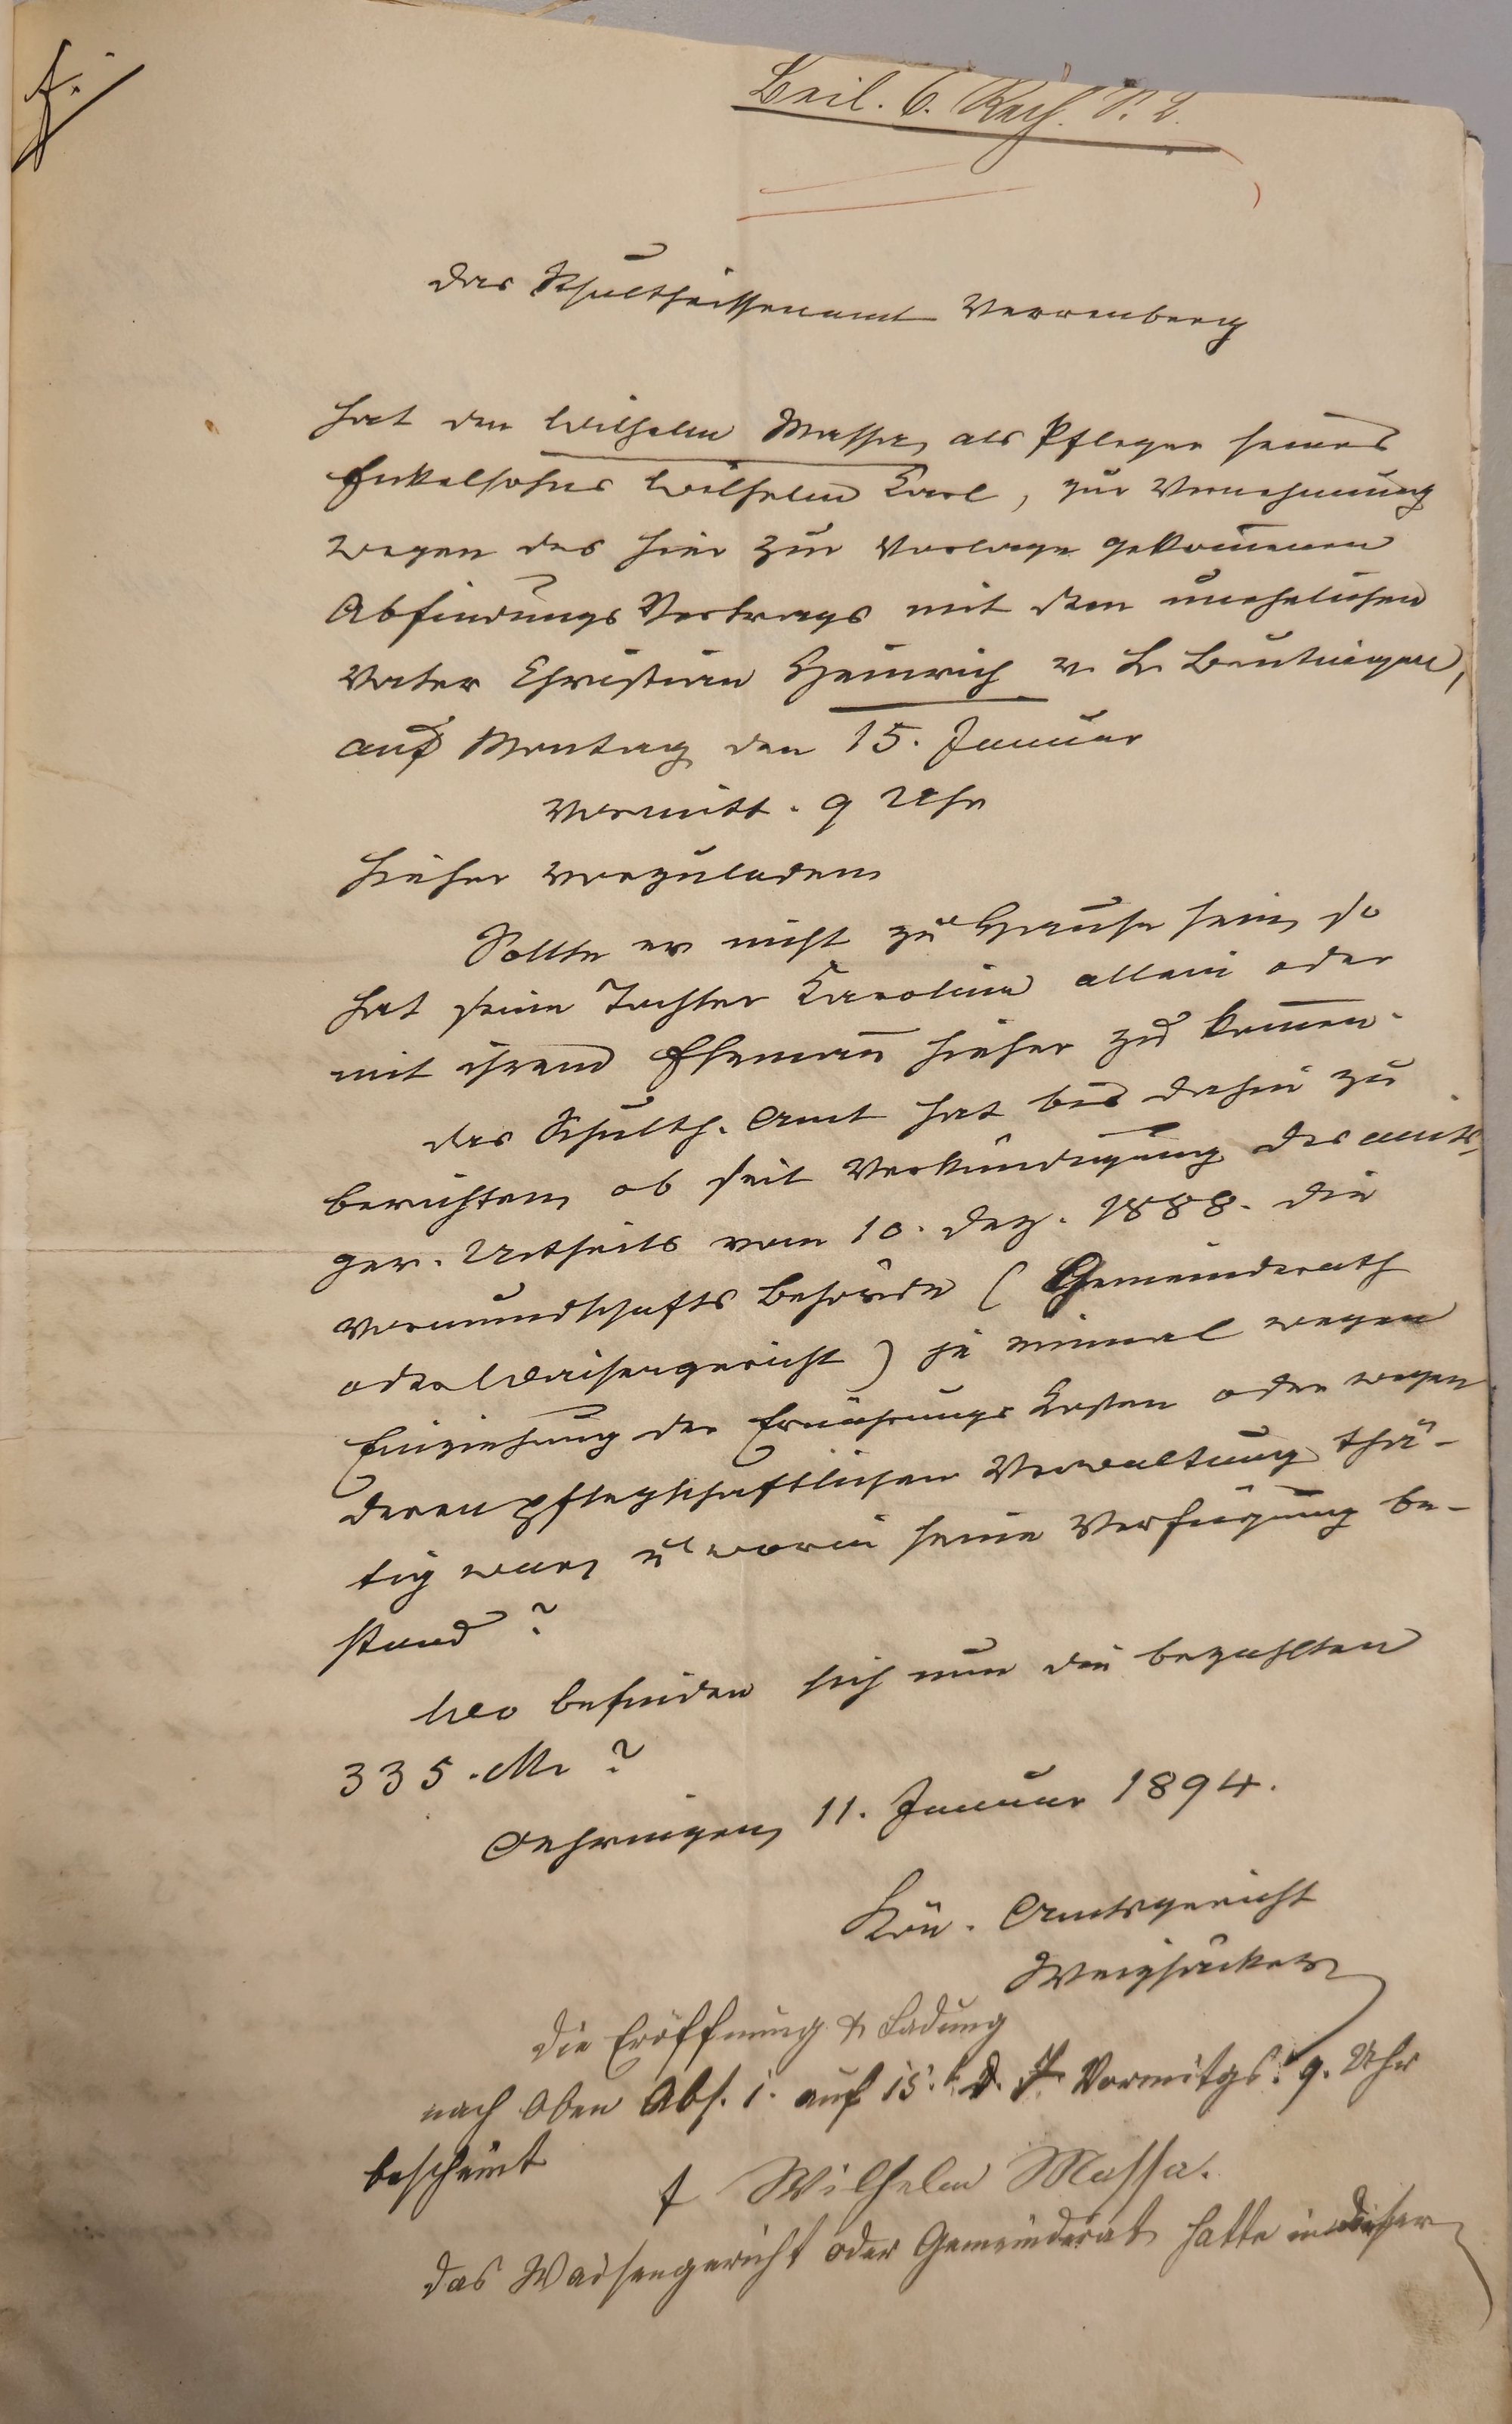 Beil. 6. Rech. P. 2.
Das Schultheissenamt Verrenberg
hat den Wilhelm Massa, als Pfleger seines
Enkelsohns Wilhelm Karl, zur Vernehmung
wegen des hier zur Vorlage gekommenen
Abfindungs Vertrags mit dem unehelichen
Vater Christian Heinrich v.
auf Montag den 15. Januar
Vormitt. 9 Uhr
hieher vorzuladen
Sollte er nicht zu Hause sein, so
hat seine Tochter Karoline allein oder
mit ihrem Ehemann hieher zu kommen.
Das Schulth. Amt hat bis dahin zu
berichten, ob seit Verkündigung des amts-
ger. Urtheils vom 10. Dez. 1888. die
Vormundschafts Behörde (Gemeinderath
oder Waisengericht) je einmal wegen
Einziehung der Ernährungs Kosten oder wegen
deren pflegschaftlichen Verwaltung thä-
tig war, u worin seine Verfügung be-
stand?
Wo befinden sich nun die bezahlten
335. M. ?
Oehringen, 11. Januar 1894.
Kön. Amtsgericht
Die Eröffnung & Ladung
nach Oben Abs. 1. auf 15. d. Vormitgs. 9. Uhr
bescheint
t Wilhelm Massa.
Das Waisengericht oder Gemeinderat hatte in dieser